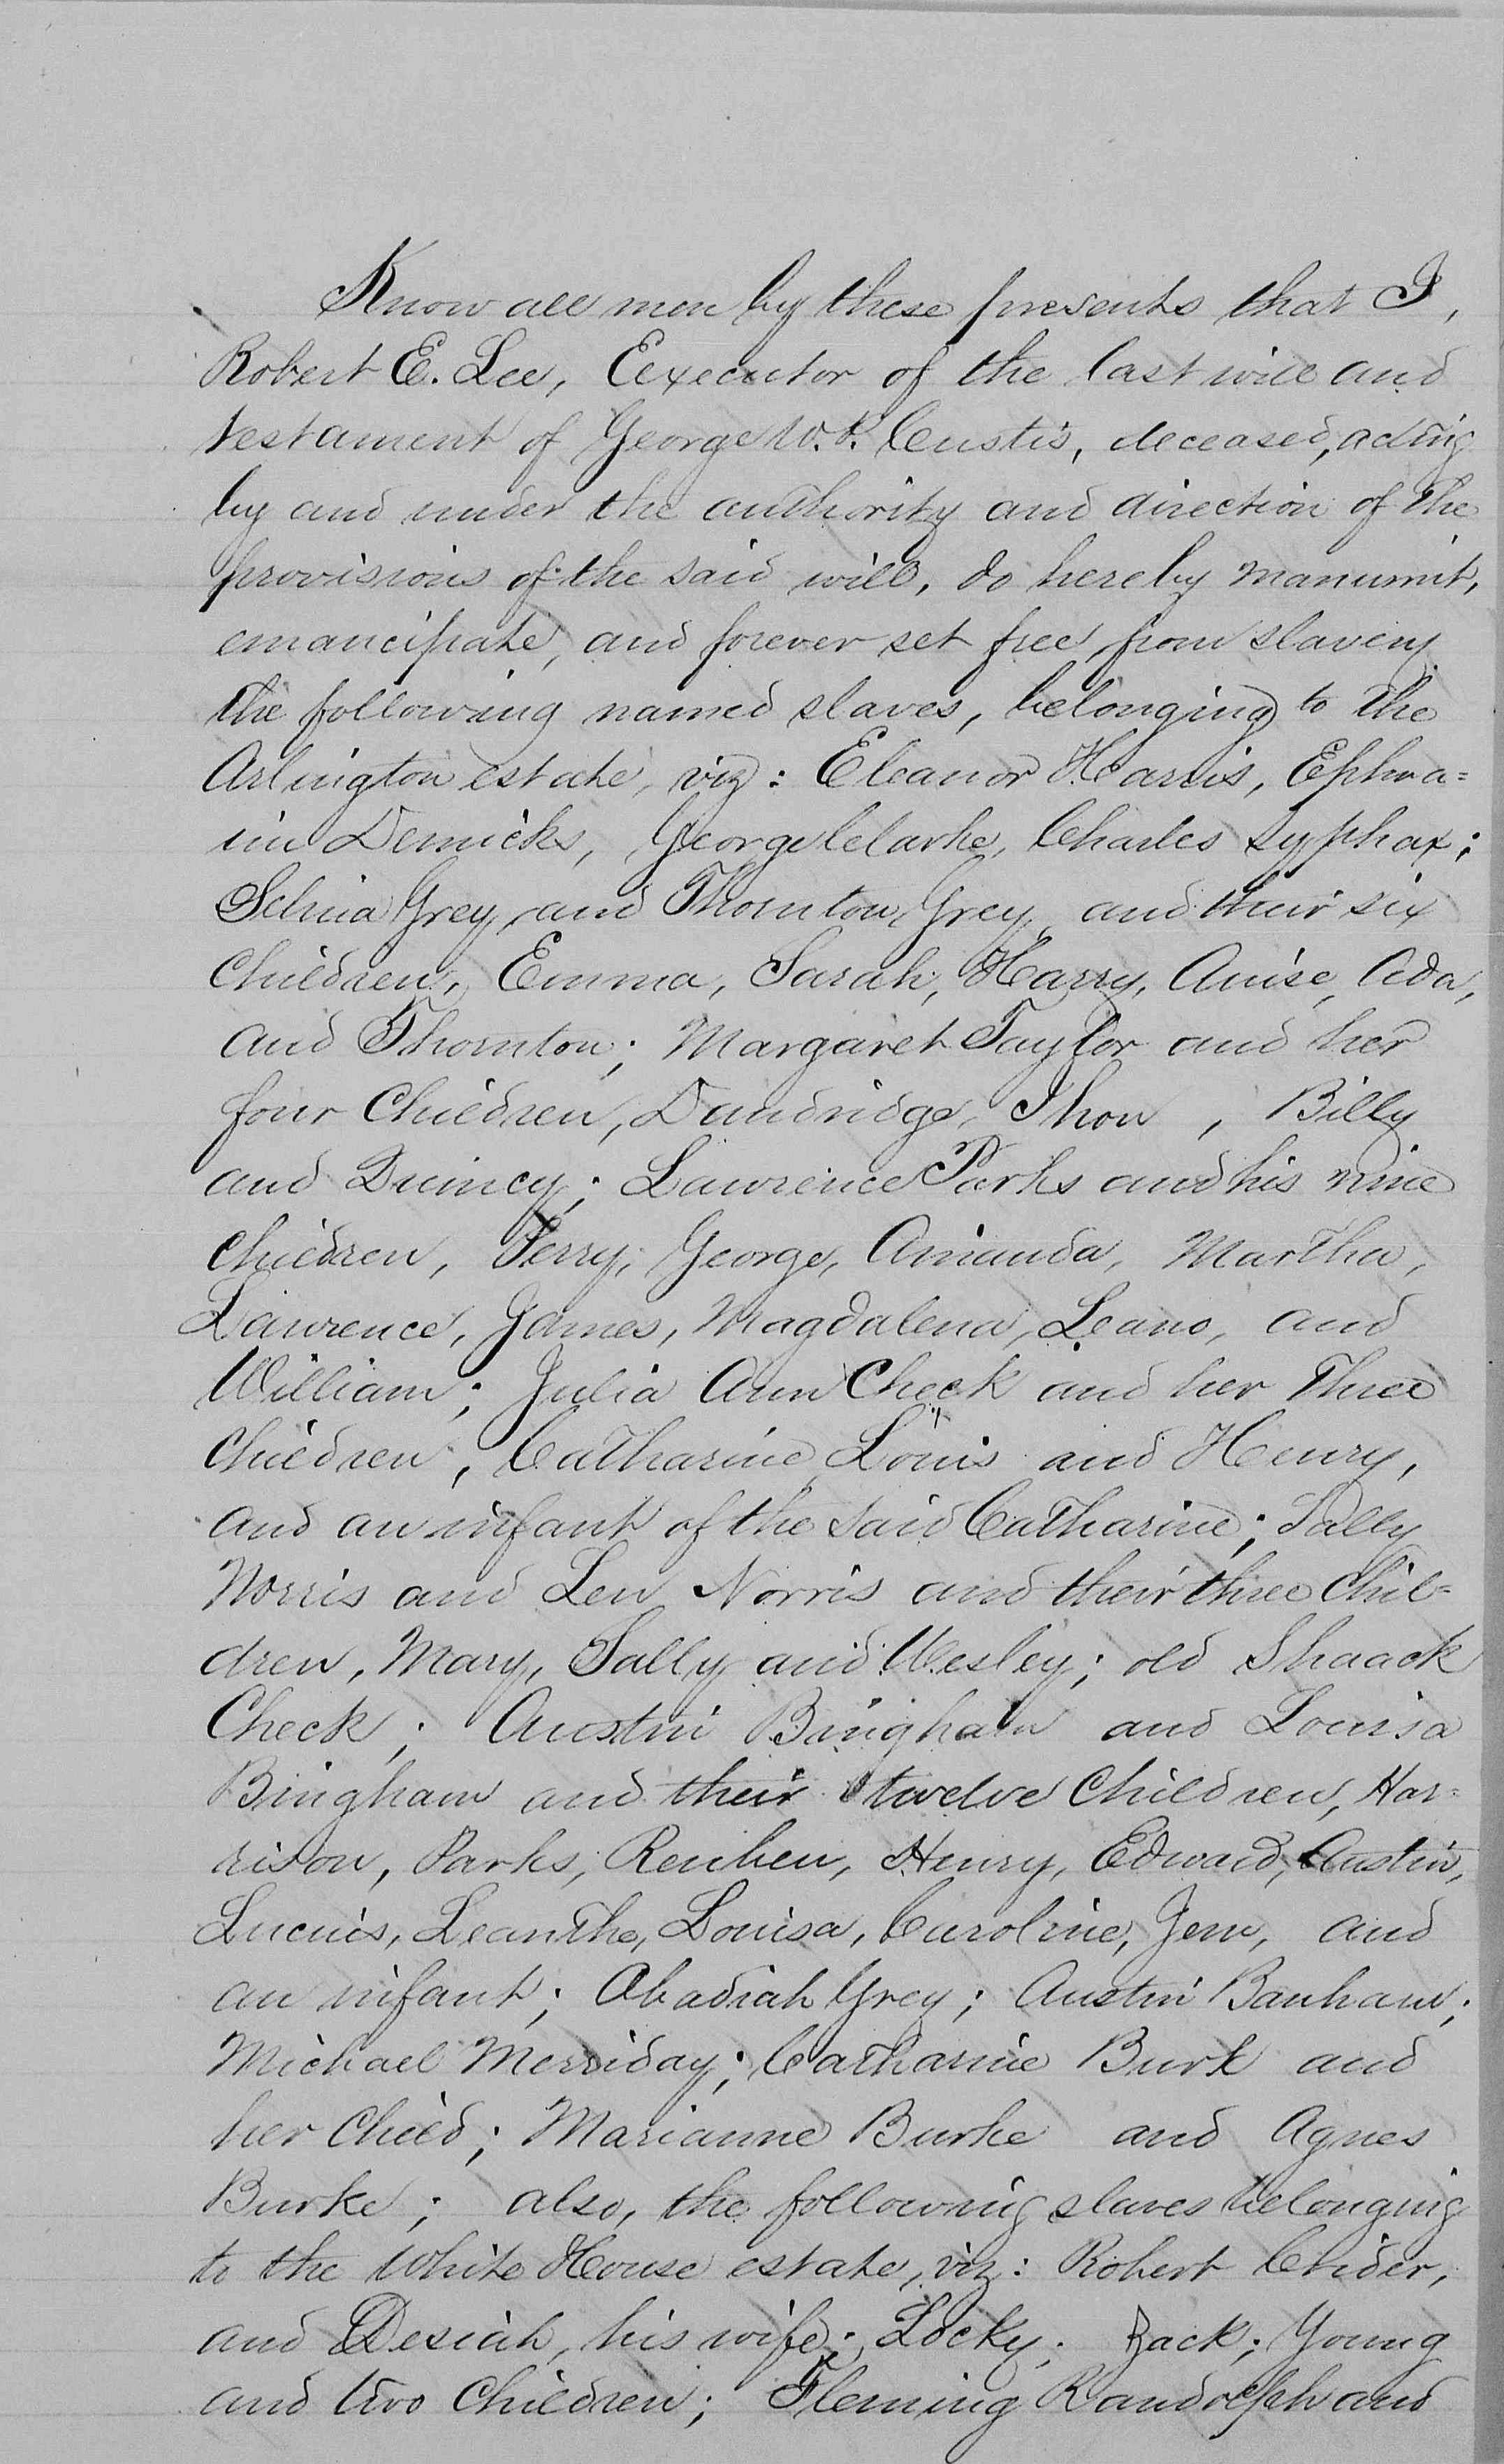 Know all men by these presents that I,
Robert E. Lee, Executor of the last will and
testament of George W. P. Custis, deceased, acting
by and under the authority and direction of the
provisions of the said will, do hereby manumit,
emancipate, and forever set free from slavery
the following named slaves, belonging to the
Arlington estate, viz: Eleanor Harris, Ephra=
im Derricks, George Clarke, Charles Syphax;
Selina Grey and Thornton Grey, and their six
Children, Emma, Sarah, Harry, Anise, Ada,
and Thornton; Margaret Taylor and her
four Children, Dandridge, Thon , Billy
and Quincy; Lawrence Parks and his nine
Children, Perry, George, Amanda, Martha,
Lawrence, James, Magdalena, Leano, and
William; Julia Ann Check and her Three
Children, Catharine Louis and Henry,
and an infant of the said Catharine; Sally
Norris and Len Norris and their three Chil=
dren, Mary, Sally and Wesley; old Shaack
Check; Austin Bingham and Louisa
Bingham and their twelve Children, Har=
rison, Parks, Reuben, Henry, Edward, Austin,
Lucius, Leanthe, Louisa, Caroline, Jem, and
an infant; Obadiah Grey; Austin Banham;
Michael Merriday; Catharine Burk and
her Child; Marianne Burke and Agnes
Burke; also, the following slaves belonging
to the White House estate, viz: Robert Crider,
and Desiah, his wife; Locky; Zack; Young
and two Children; Fleming Randolph and